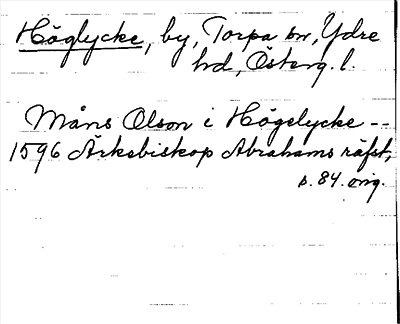 Höglycke, by, Torpa sn, Ydre
hd, Österg. l.
Måns Olson i Högelycke --
1596 Ärkebiskop Abrahams räfst,
s. 84. orig.